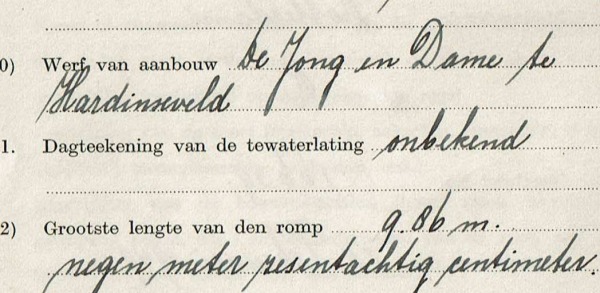 0) Werf van aanbouw de Jong en Dame te
Hardinseveld
1. Dagteekening van de tewaterlating onbekend
2) Grootste lengte van den romp 9.86 m.
negen meter zesentachtig centimeter.